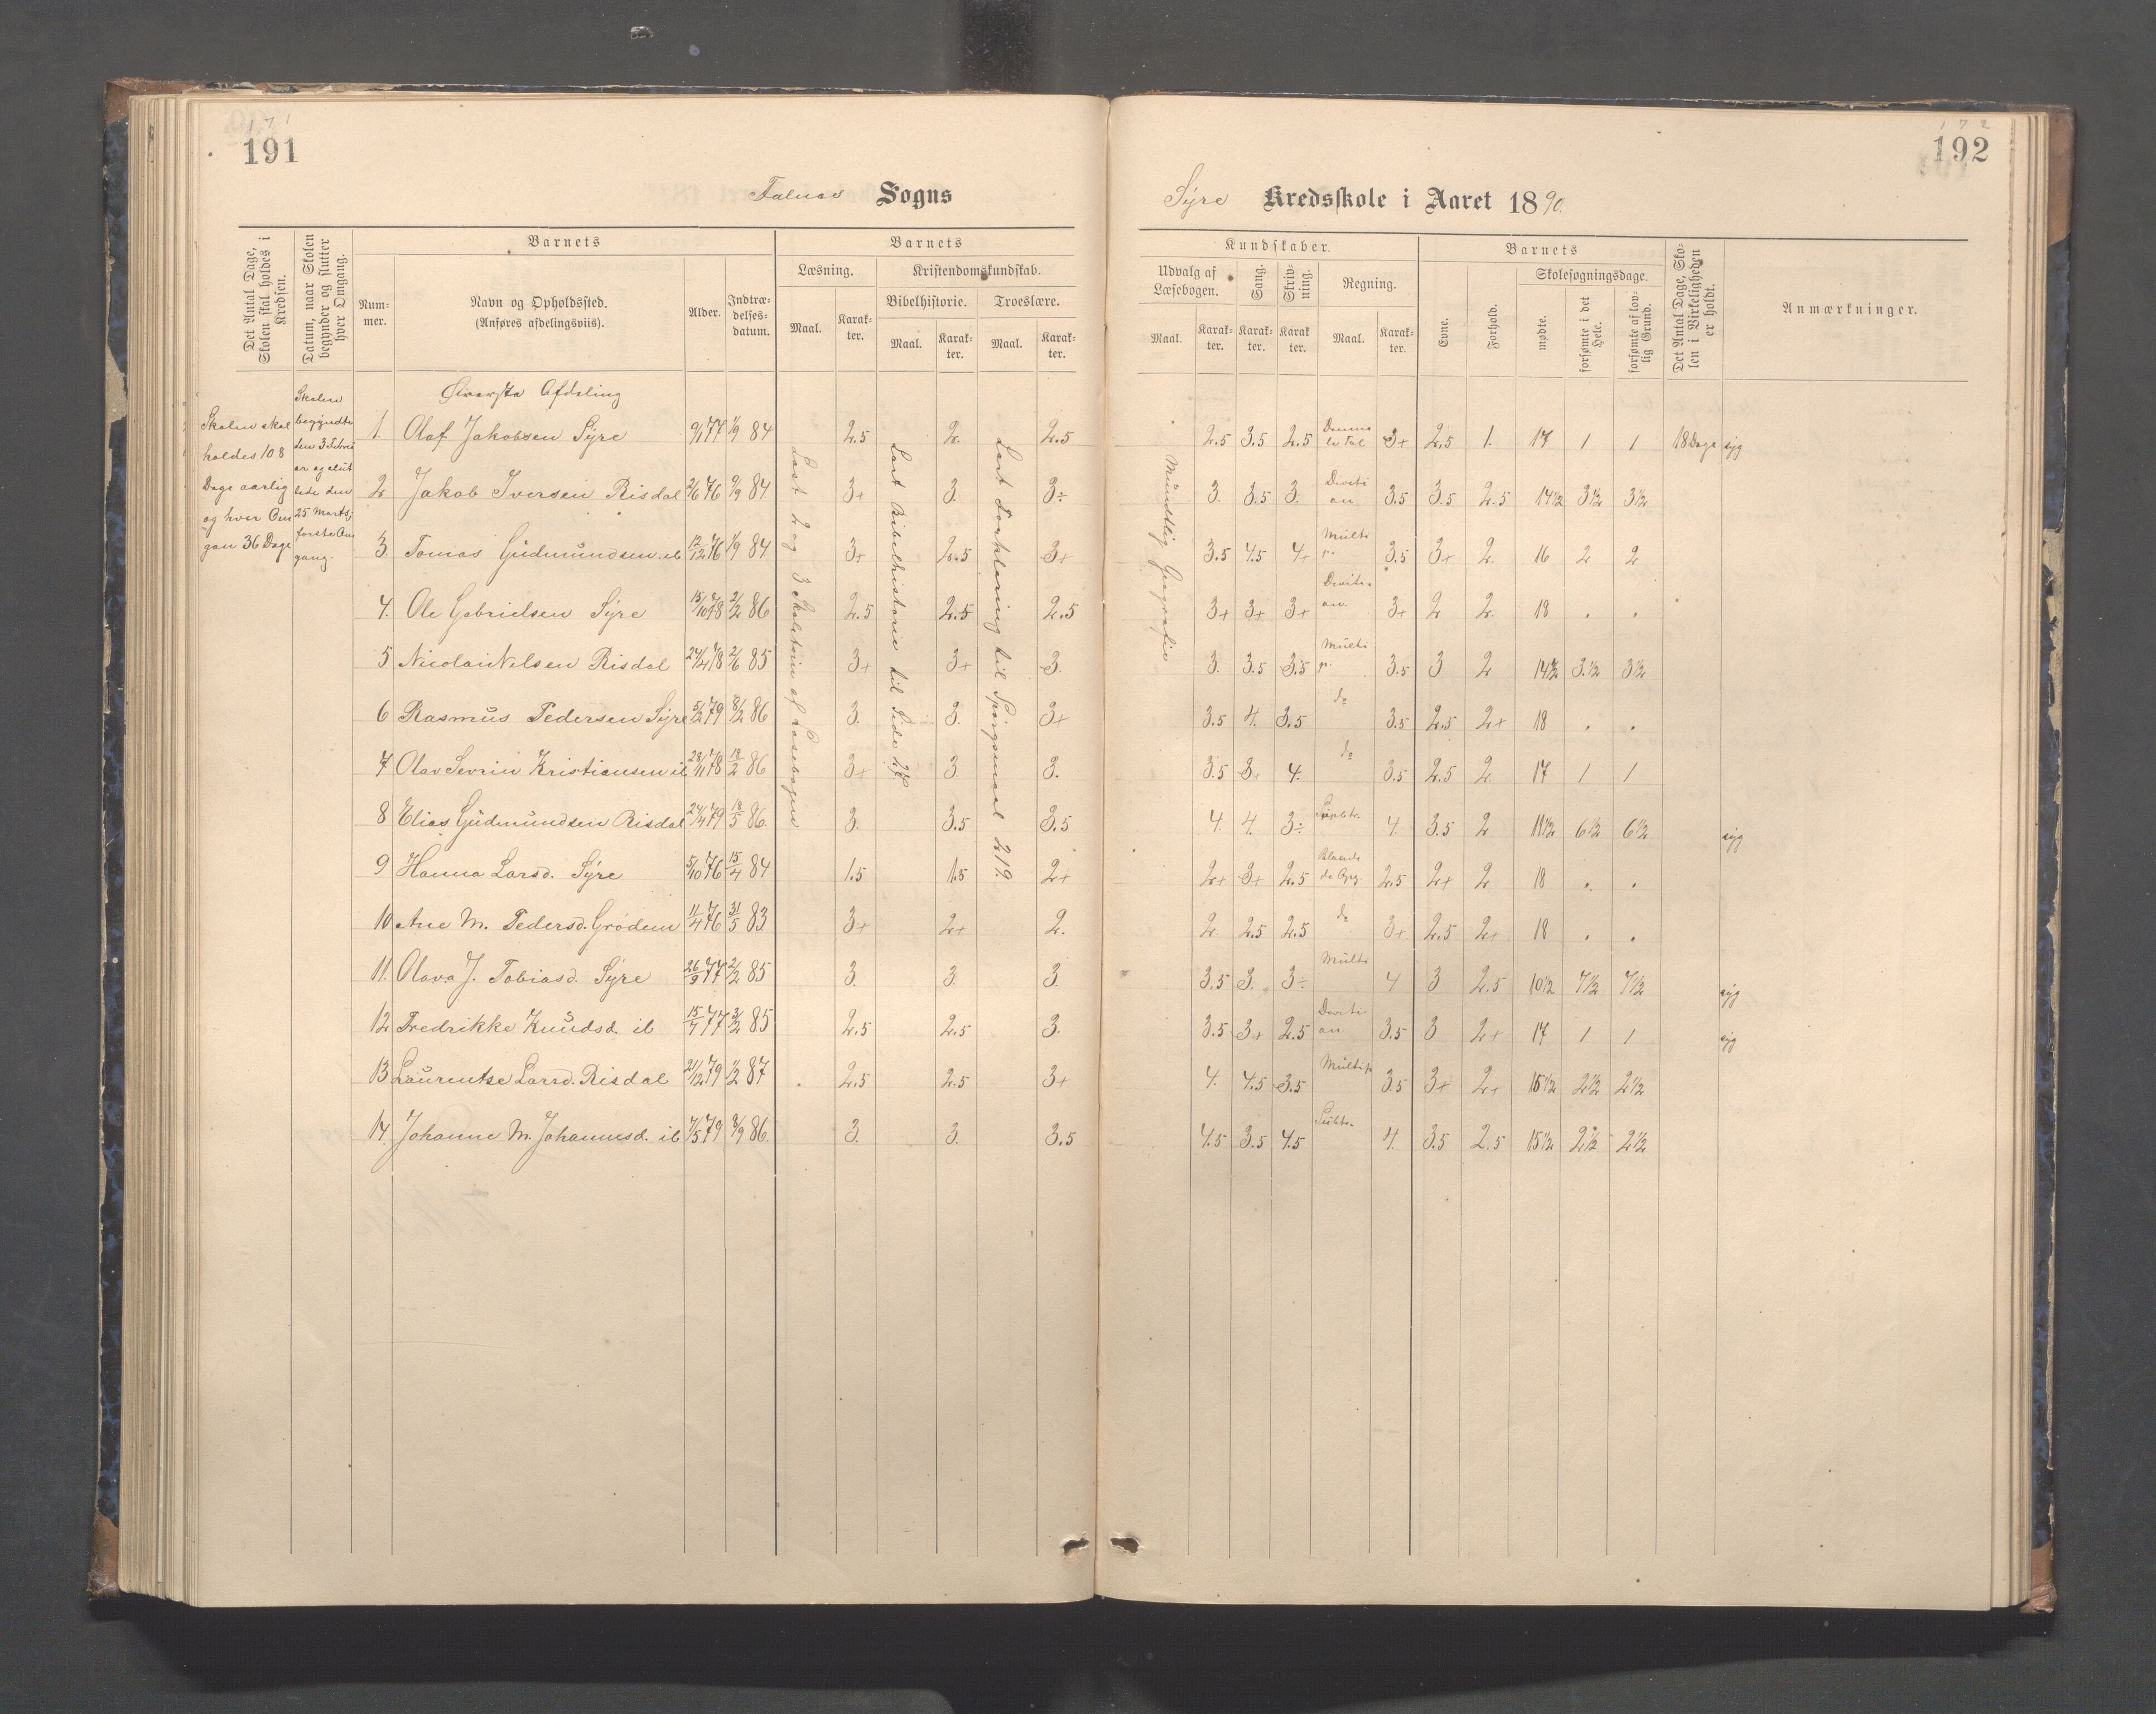 171
191
Sogns
Det Antal Dage, Skolen skal holdes i Kredsen.
Datum, naar Skolen begynder og slutter hver Omgang.
Barnets
Barnets
Num-
mer.
Navn og Opholdssted.
(Anføres afdelingsviis).
Alder.
Indtræ-
delses-
datum.
Læsning.
Kristendomskundskab.
Bibelhistorie.
Troeslære.
Maal.
Karak-
ter.
Maal.
Karak-
ter.
Maal.
Karak-
ter.
Øverste Afdeling
Skolen skal
holdes 108
Dage aarlig
og hver Om
gan 36 Dage
Skolen
begyndte
den 3 Febru
ar og slut
tede den
25 Marts,
første Om
gang.
Læst 2 og 3 Skoletrin af Læsebogen
Læst Bibelhistorie til Side 27.
Læst Forklaring til Spørgsmaal 219.
1. Olaf Jakobsen Syre 9/1 77 1/9 84 2.5 2. 2.5
2 Jakob Iversen Risdal 2/6 76 9/9 84 3+ 3. 3÷
3. Tomas Gudmundsen ib 12/12 76 1/9 84 3+ 2.5 3+
4. Ole Gabrielsen Syre 15/10 78 2/2 86 2.5 2.5 2.5
5 Nicolai Nilsen Risdal 24/4 78 2/6 85 3+ 3+ 3.
6 Rasmus Pedersen Syre 5/2 79 8/2 86 3. 3. 3+
7 Olav Sevrin Kristiansen ib 28/11 78 18/2 86 3+ 3 3.
8 Elias Gudmundsen Risdal 24/4 79 18/5 86. 3. 3.5 3.5
9 Hanna Larsd. Syre 5/10 76 15/4 84 1.5 1.5 2+
10 Ane M. Pedersd. Grødem 11/4 76 31/5 83 3+ 2+ 2.
11. Olava J. Tobiasd. Syre 26/9 77 2/2 85 3. 3. 3.
12 Fredrikke Knudsd. ib 15/7 77 3/2 85 2.5 2.5 3.
13 Laurentse Larsd. Risdal 21/12 79 1/2 87 2.5 2.5 3+
14. Johanne M. Johannesd. ib 7/5 79 8/9 86. 3. 3. 3.5
172
192
Syre Kredsskole i Aaret 1890.
Kundskaber.
Barnets
Udvalg af
Læsebogen.
Sang.
Skriv-
ning.
Regning.
Skolesøgningsdage.
Maal.
Karak-
ter.
Karak-
ter.
Karak
ter.
Maal.
Karak-
ter.
Evne.
Forhold.
mødte.
forsømte i det Hele.
forsømte af lov-
lig Grund.
Det Antal Dage, Sko-
len i Virkeligheden
er holdt.
Anmærkninger.
Mundtlig Geografie
2.5 3.5 2.5 3+ 2.5 1. 17 1 1 18 Dage syg
3. 3.5 3. Diviti on 3.5 3.5 2.5 14½ 3½ 3½
3.5 4.5 4+ Multi p. 3.5 3+ 2. 16 2 2
3+ 3+ 3+ Diviti on. 3+ 2 2. 18 . .
3. 3.5 3.5 Multi p. 3.5 3 2 14½ 3.½ 3½
3.5 4. 3.5 do 3.5 2.5 2+ 18 . .
3.5 3+ 4. do 3.5 2.5 2. 17 1 1
4. 4. 3÷ Subtr. 4. 3.5 2 11½ 6½ 6½ syg
2+ 3+ 2.5 2.5 2+ 2 18 . .
2 2.5 2.5 do 3+ 2.5 2+ 18 . .
3.5 3. 3÷ Multi 4 3 2.5 10½ 7½ 7½ syg
3.5 3+ 2.5 Diviti on. 3.5 3 2+ 17 1 1 syg
4. 4.5 3.5 Multip 3.5 3+ 2+ 15½ 2½ 2½
4.5 3.5 4.5 Subtr. 4. 3.5 2.5 15½ 2½ 2½